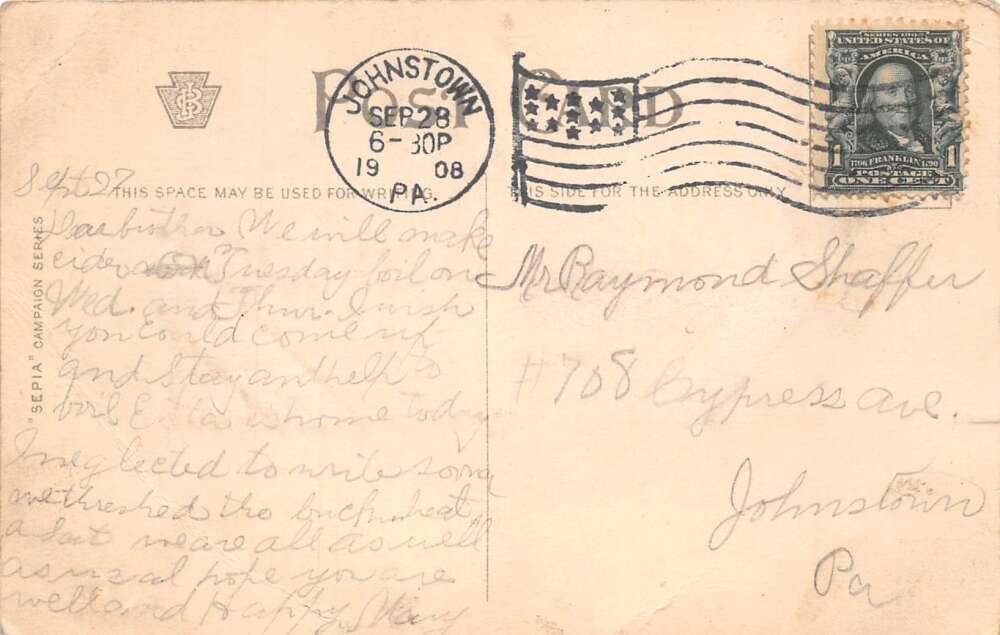 POST CARD
JOHNSTOWN
SEP 28
6-30P
1908
PA.
SERIES 1902
UNITED STATES OF
AMERICA
1 1706 FRANKLIN 1790 1
POSTAGE
ONE CENT
THIS SPACE MAY BE USED FOR WRITING.
THIS SIDE FOR THE ADDRESS ONLY
"SEPIA" CAMPAIGN SERIES
Sept 27
Dear brother We will make
cider Tuesday boil on
Wed. and Thur. I wish
you could come up
and stay and help
boil Etta is home today
I neglected to write sooner
we threshed the buckwheat
Sat we are all as well
as usual hope you are
well and Happy. Mary
Mr Raymond Shaffer
#708 Cypress Ave.
Johnstown
Pa